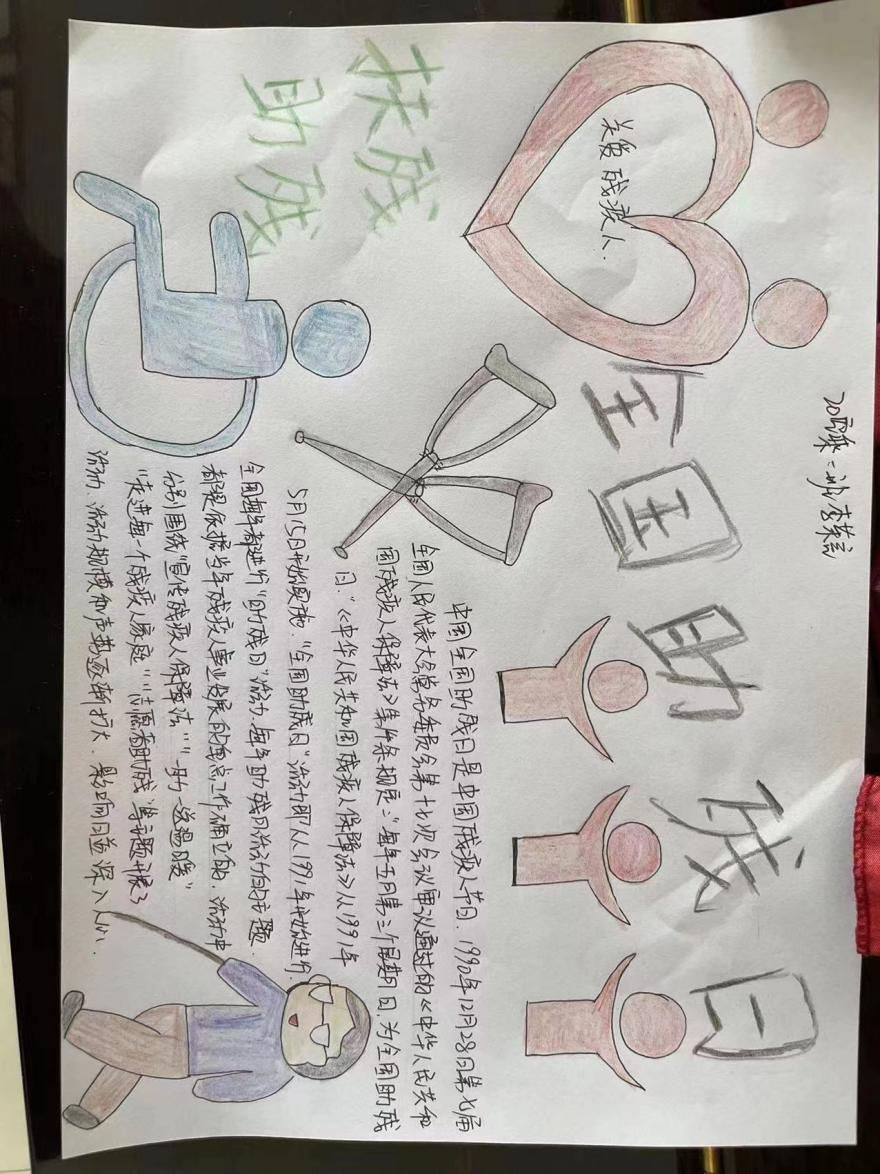 全国助残日
关爱残疾人.
扶残
助残
中国全国助残日是中国残疾人节日. 1990年12月28日第七届
全国人民代表大会常务委员会第十七次会议审议通过的《中华人民共和
国残疾人保障法》第14条规定:“每年五月第三个星期日,为全国助残
日.”《中华人民共和国残疾人保障法》从1991年
5月15日开始实施.“全国助残日”活动即从1991年开始进行.
全国每年都进行“助残日”活动.每年助残日活动的主题.
都是依据当年残疾人事业发展的重点工作确立的.活动中
分别围绕“宣传残疾人保障法”“一助一送温暖”
“走进每一个残疾人家庭”“志愿者助残”等主题开展了
活动.活动规模和声势逐渐扩大.影响日益深入人心.